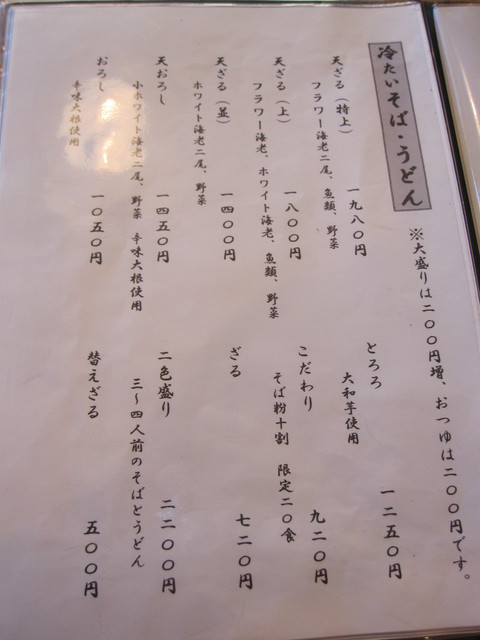 冷たいそば・うどん
※大盛りは二〇〇円増、おつゆは二〇〇円です。
天ざる（特上） 一九八〇円
フラワー海老二尾、魚類、野菜
天ざる（上） 一八〇〇円
フラワー海老、ホワイト海老、魚類、野菜
天ざる（並） 一四〇〇円
ホワイト海老二尾、野菜
天おろし 一四五〇円
小ホワイト海老二尾、野菜 辛味大根使用
おろし 一〇五〇円
辛味大根使用
とろろ 一二五〇円
大和芋使用
こだわり 九二〇円
そば粉十割 限定二〇食
ざる 七二〇円
二色盛り 二二〇〇円
三～四人前のそばとうどん
替えざる 五〇〇円